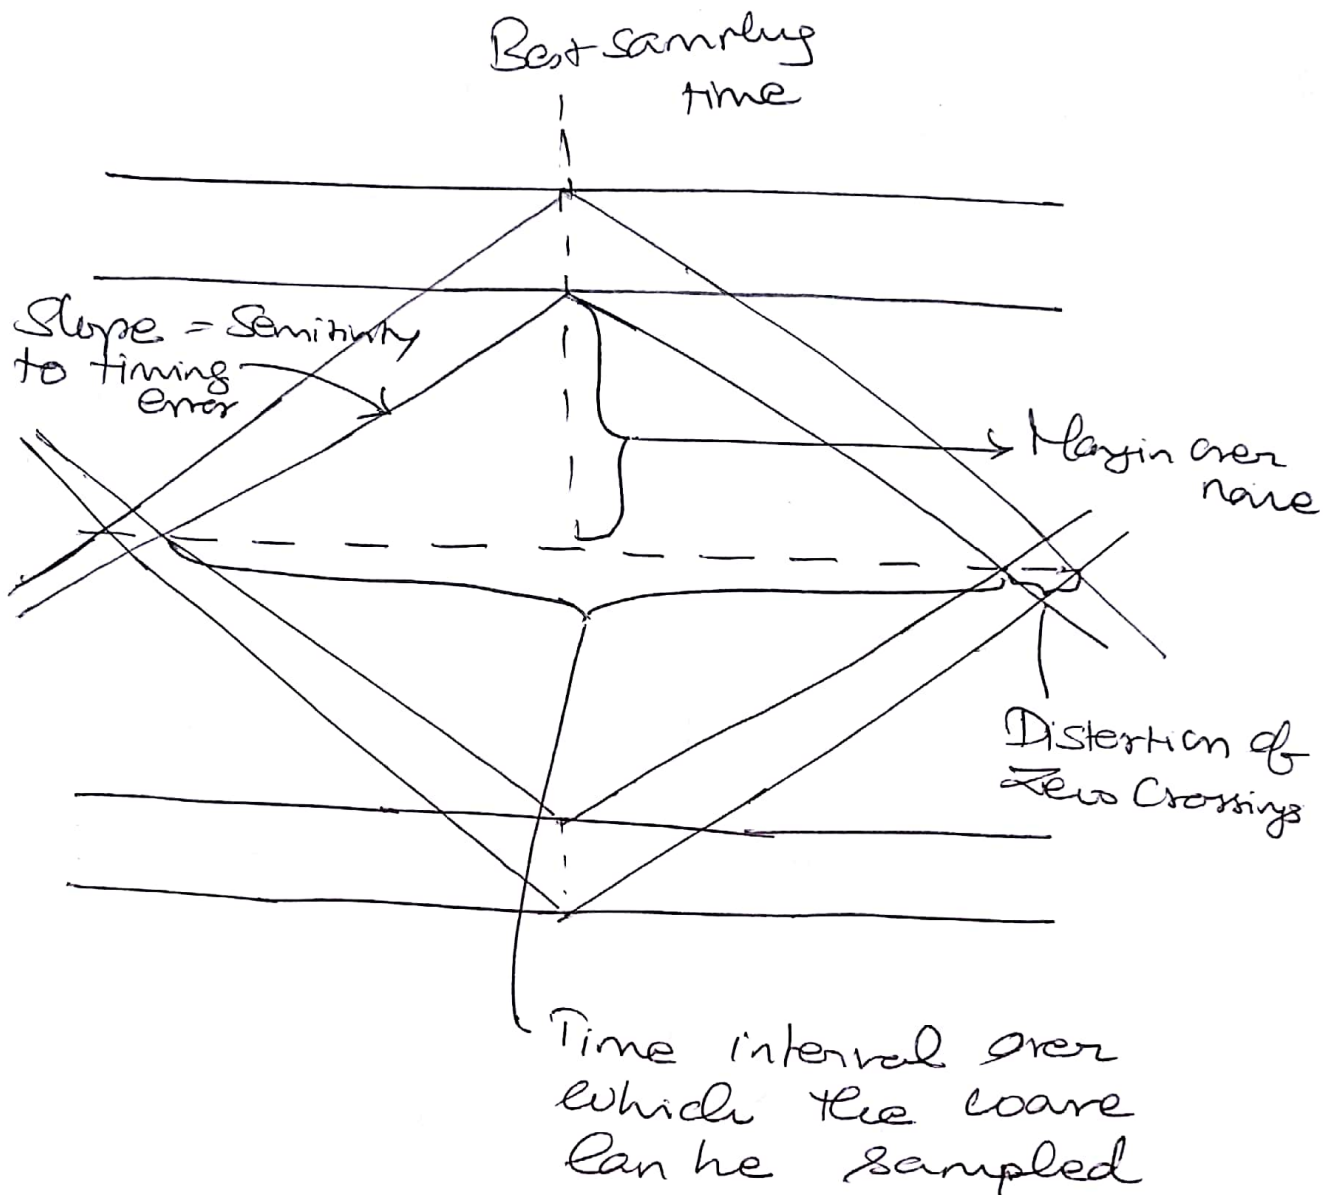 Best sampling
time
Slope = Sensitivity
to timing
error
Margin over
noise
Distortion of
Zero Crossings
Time interval over
which the wave
Can be sampled